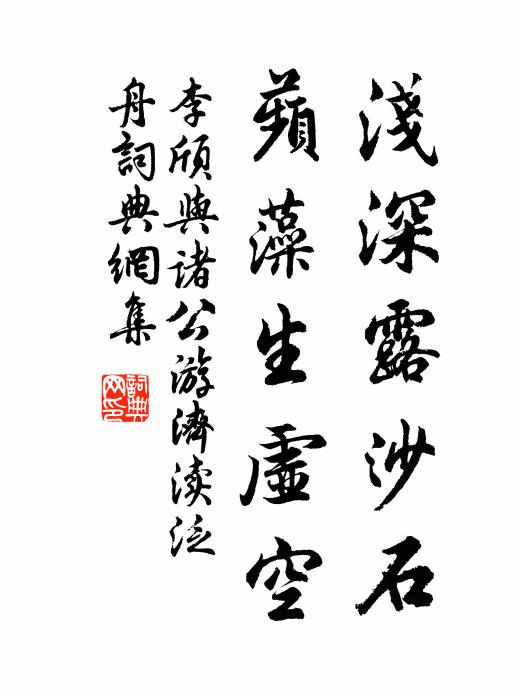 淺深露沙石
蘋藻生虛空
李頎與諸公游濟渎泛
舟詞典網集
詞典
网印